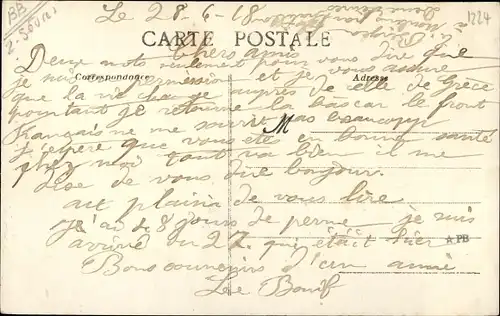 BB
2. Sèvres
1224
Le 28-6-18
CARTE POSTALE
Chers amis
Deux mots seulement pour vous dire que
Correspondance
Adresse
je suis permission et je vous assure
que la vie change auprès de celle de Grèce
pourtant je retourne la bas car le front
Français ne me sourit pas beaucoup
M
J'espère que vous êtes en bonne santé
chez moi tout va bien il me
de vous dire bonjour.
au plaisir de vous lire
j'ai 8 jours de perme je suis
arrivé du 27 qui était hier
PB
Bons souvenirs d'un ami
Le